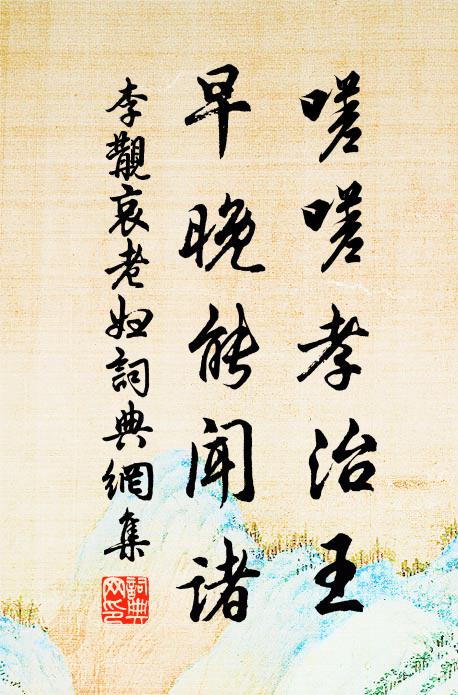 嗟嗟孝治王
早晚能闻诸
李觏哀老妇詞典網集
詞典网印